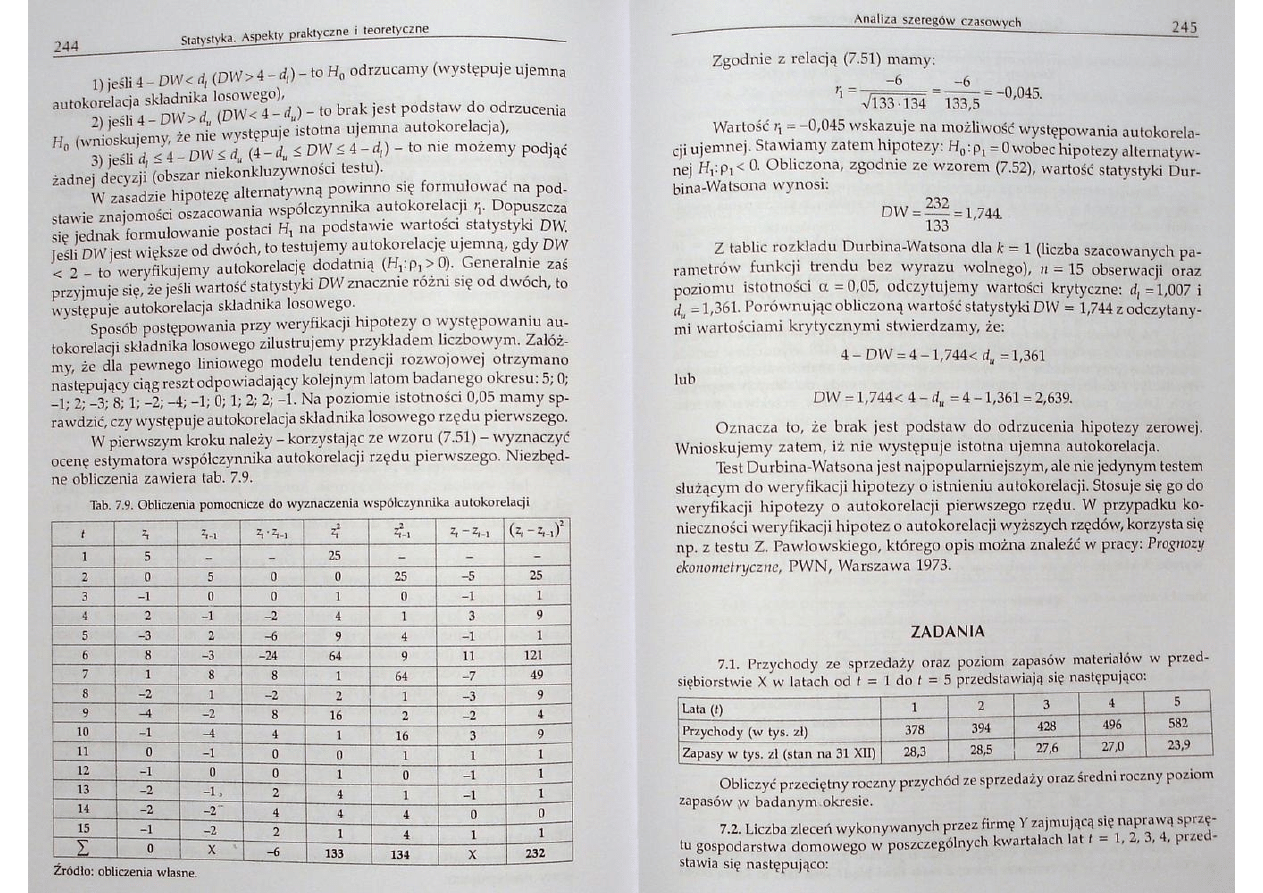 244 Statystyka. Aspekty praktyczne i teoretyczne
1) jeśli 4 – DW < d_l (DW > 4 – d_l) – to H₀ odrzucamy (występuje ujemna
autokorelacja składnika losowego),
2) jeśli 4 – DW > d_u (DW < 4 – d_u) – to brak jest podstaw do odrzucenia
H₀ (wnioskujemy, że nie występuje istotna ujemna autokorelacja),
3) jeśli d_l ≤ 4 – DW ≤ d_u (4 – d_u ≤ DW ≤ 4 – d_l) – to nie możemy podjąć
żadnej decyzji (obszar niekonkluzywności testu).
W zasadzie hipotezę alternatywną powinno się formułować na pod-
stawie znajomości oszacowania współczynnika autokorelacji r₁. Dopuszcza
się jednak formułowanie postaci H₁ na podstawie wartości statystyki DW.
Jeśli DW jest większe od dwóch, to testujemy autokorelację ujemną, gdy DW
< 2 – to weryfikujemy autokorelację dodatnią (H₁: ρ₁ > 0). Generalnie zaś
przyjmuje się, że jeśli wartość statystyki DW znacznie różni się od dwóch, to
występuje autokorelacja składnika losowego.
Sposób postępowania przy weryfikacji hipotezy o występowaniu au-
tokorelacji składnika losowego zilustrujemy przykładem liczbowym. Załóż-
my, że dla pewnego liniowego modelu tendencji rozwojowej otrzymano
następujący ciąg reszt odpowiadający kolejnym latom badanego okresu: 5; 0;
–1; 2; –3; 8; 1; –2; –4; –1; 0; 1; 2; 2; –1. Na poziomie istotności 0,05 mamy sp-
rawdzić, czy występuje autokorelacja składnika losowego rzędu pierwszego.
W pierwszym kroku należy – korzystając ze wzoru (7.51) – wyznaczyć
ocenę estymatora współczynnika autokorelacji rzędu pierwszego. Niezbęd-
ne obliczenia zawiera tab. 7.9.
Tab. 7.9. Obliczenia pomocnicze do wyznaczenia współczynnika autokorelacji
t z_t z_{t–1} z_t · z_{t–1} z_t² z²_{t–1} z_t – z_{t–1} (z_t – z_{t–1})²
1 5 – – 25 – – –
2 0 5 0 0 25 –5 25
3 –1 0 0 1 0 –1 1
4 2 –1 –2 4 1 3 9
5 –3 2 –6 9 4 –1 1
6 8 –3 –24 64 9 11 121
7 1 8 8 1 64 –7 49
8 –2 1 –2 2 1 –3 9
9 –4 –2 8 16 2 –2 4
10 –1 –4 4 1 16 3 9
11 0 –1 0 0 1 1 1
12 –1 0 0 1 0 –1 1
13 –2 –1 2 4 1 –1 1
14 –2 –2 4 4 4 0 0
15 –1 –2 2 1 4 1 1
Σ 0 X –6 133 134 X 232
Źródło: obliczenia własne.
Analiza szeregów czasowych 245
Zgodnie z relacją (7.51) mamy:
r₁ = –6 / √133 · 134 = –6 / 133,5 = –0,045.
Wartość r₁ = –0,045 wskazuje na możliwość występowania autokorela-
cji ujemnej. Stawiamy zatem hipotezy: H₀: ρ₁ = 0 wobec hipotezy alternatyw-
nej H₁: ρ₁ < 0. Obliczona, zgodnie ze wzorem (7.52), wartość statystyki Dur-
bina-Watsona wynosi:
DW = 232 / 133 = 1,744.
Z tablic rozkładu Durbina-Watsona dla k = 1 (liczba szacowanych pa-
rametrów funkcji trendu bez wyrazu wolnego), n = 15 obserwacji oraz
poziomu istotności α = 0,05, odczytujemy wartości krytyczne: d_l = 1,007 i
d_u = 1,361. Porównując obliczoną wartość statystyki DW = 1,744 z odczytany-
mi wartościami krytycznymi stwierdzamy, że:
4 – DW = 4 – 1,744 < d_u = 1,361
lub
DW = 1,744 < 4 – d_u = 4 – 1,361 = 2,639.
Oznacza to, że brak jest podstaw do odrzucenia hipotezy zerowej.
Wnioskujemy zatem, iż nie występuje istotna ujemna autokorelacja.
Test Durbina-Watsona jest najpopularniejszym, ale nie jedynym testem
służącym do weryfikacji hipotezy o istnieniu autokorelacji. Stosuje się go do
weryfikacji hipotezy o autokorelacji pierwszego rzędu. W przypadku ko-
nieczności weryfikacji hipotez o autokorelacji wyższych rzędów, korzysta się
np. z testu Z. Pawłowskiego, którego opis można znaleźć w pracy: Prognozy
ekonometryczne, PWN, Warszawa 1973.
ZADANIA
7.1. Przychody ze sprzedaży oraz poziom zapasów materiałów w przed-
siębiorstwie X w latach od t = 1 do t = 5 przedstawiają się następująco:
Lata (t) 1 2 3 4 5
Przychody (w tys. zł) 378 394 428 496 582
Zapasy w tys. zł (stan na 31 XII) 28,3 28,5 27,6 27,0 23,9
Obliczyć przeciętny roczny przychód ze sprzedaży oraz średni roczny poziom
zapasów w badanym okresie.
7.2. Liczba zleceń wykonywanych przez firmę Y zajmującą się naprawą sprzę-
tu gospodarstwa domowego w poszczególnych kwartałach lat t = 1, 2, 3, 4, przed-
stawia się następująco: